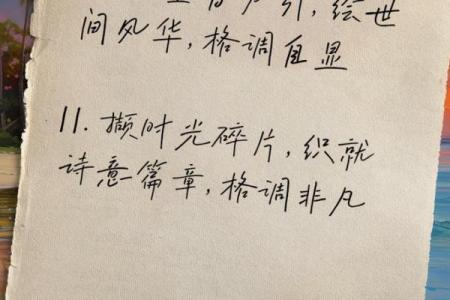 引,绘世
间风华,格调自显
11. 撷时光碎片,织就
诗意篇章,格调非凡